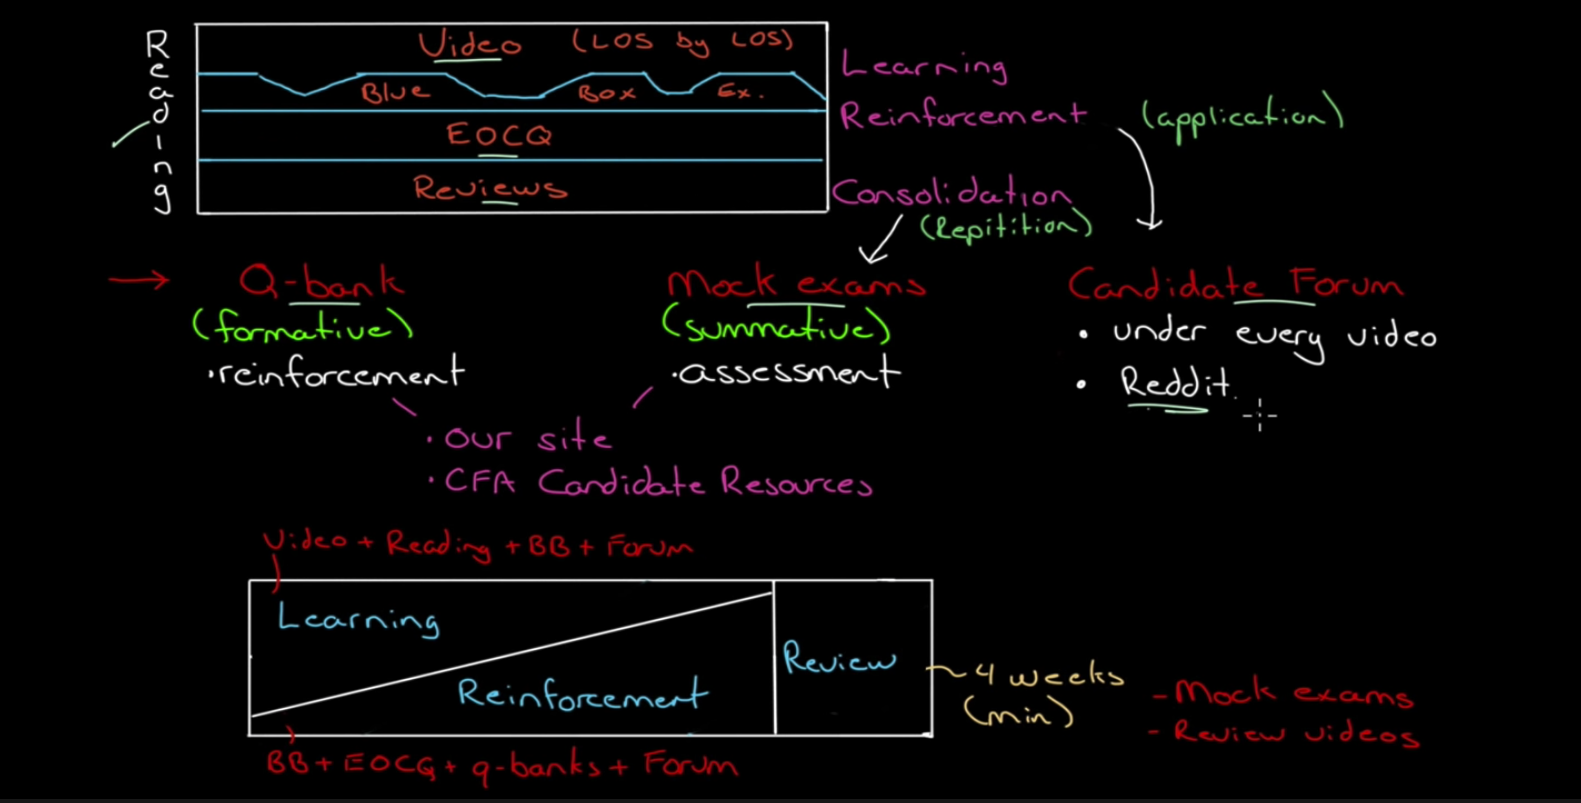 Reading
Video (LOS by LOS)
Blue Box Ex.
EOCQ
Reviews
Learning
Reinforcement (application)
Consolidation
(Repitition)
Q-bank
(formative)
·reinforcement
Mock exams
(summative)
·assessment
Candidate Forum
• under every video
• Reddit.
· our site
· CFA Candidate Resources
Video + Reading + BB + Forum
Learning
Reinforcement
Review
~4 weeks
(min)
- Mock exams
- Review videos
BB + EOCQ + q-banks + Forum